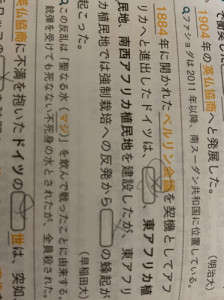 で衝突し
1904年の英仏協商へと発展した。
(明治大)
ファショダは2011年以降、南スーダン共和国に位置している。
1884年に開かれたベルリン会議を契機としてアフ
リカへと進出したドイツは、
東アフリカ植
民地、南西アフリカ植民地を建設したが、東アフリ
カ植民地では強制栽培への反発から
の蜂起が
起こった。
(早稲田大)
この反乱は「聖なる水(マジ)」を飲んで戦ったことに由来する
銃弾を受けても死なない不死身の水とされたが、全員殺された
協商に不満を抱いたドイツの
世は、突如